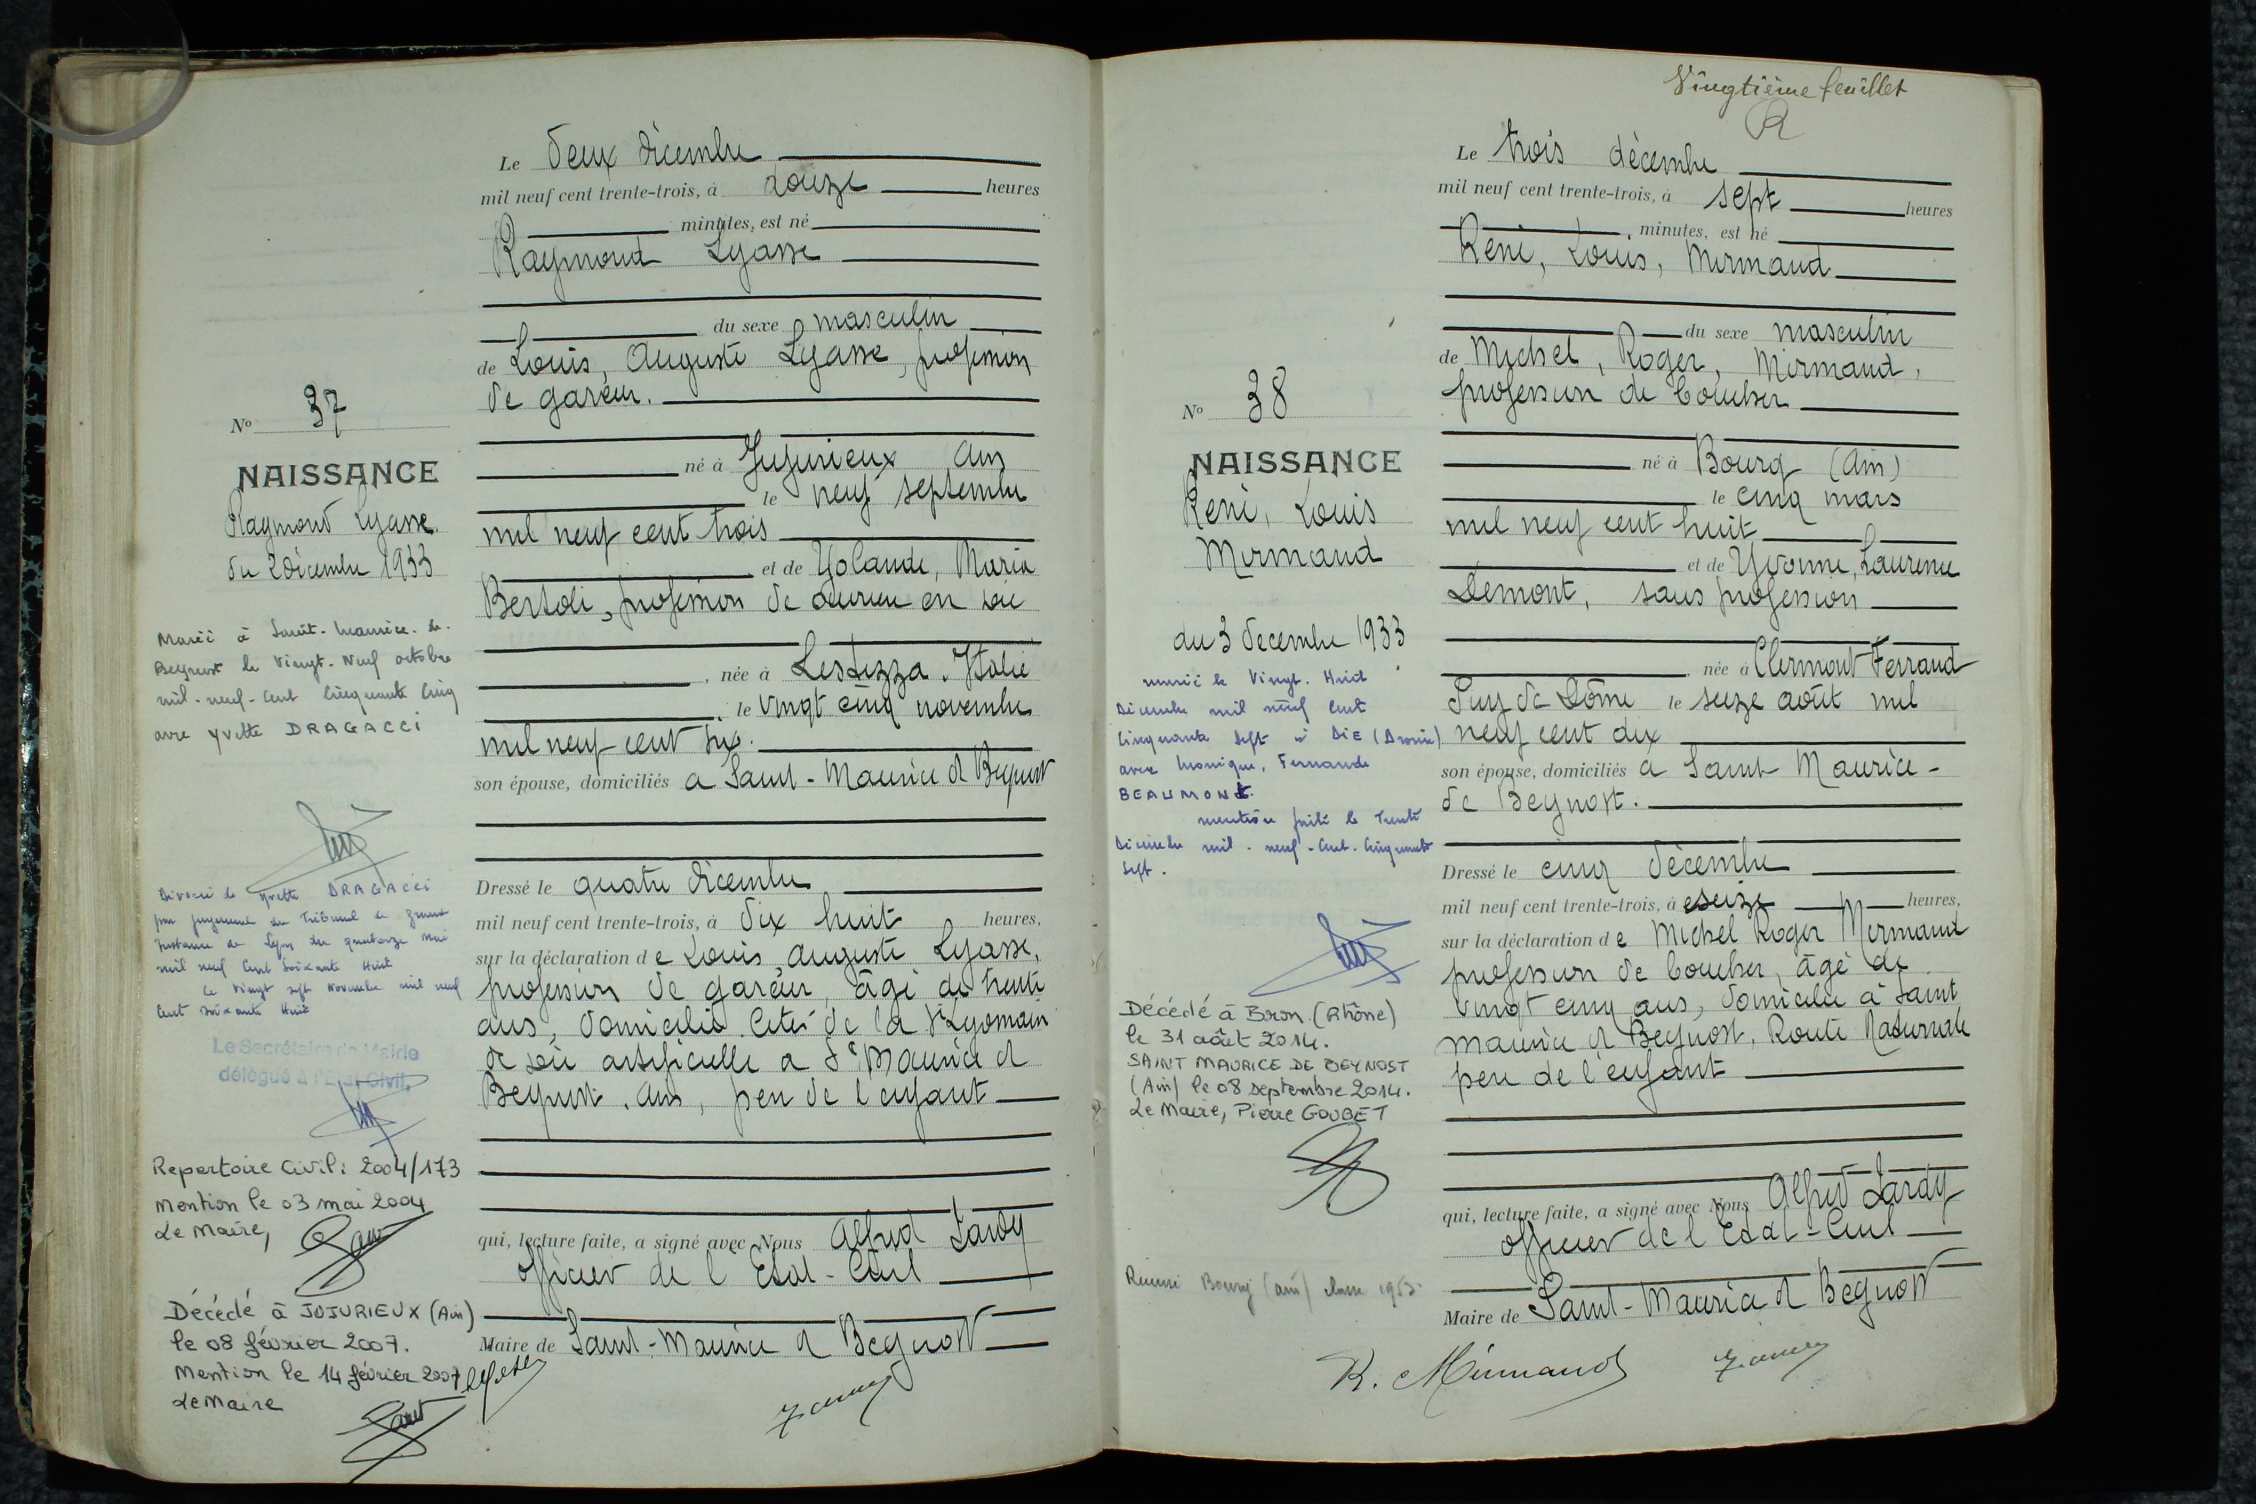 Le deux décembre
mil neuf cent trente-trois, à douze heures
minutes, est né
Raymond Lyasse
du sexe masculin
de Louis, Auguste Lyasse, profession
de gareur.
No 37
NAISSANCE
Raymond Lyasse.
du 2 Décembre 1933
né à Jujurieux Ain
le neuf septembre
mil neuf cent trois
et de Yolande, Maria
Bertoli, profession de ouvrière en soie
née à Lestizza. Italie
le vingt cinq novembre
mil neuf cent six.
son épouse, domiciliés à Saint-Maurice de Beynost
Marié à Saint-Maurice-de-
Beynost le Vingt-Neuf octobre
mil-neuf-cent Cinquante Cinq
avec Yvette DRAGACCI
Dressé le quatre décembre
mil neuf cent trente-trois, à dix huit heures,
sur la déclaration de Louis, Auguste Lyasse,
profession de gareur, âgé de trente
ans, domicilié Cité de la Sté Lyonnaise
de soie artificielle a St Maurice de
Beynost. Ain, père de l'enfant
qui, lecture faite, a signé avec Nous Alfred Lardy
officier de l'Etat-Civil
Maire de Saint-Maurice de Beynost
Divorcé de Yvette DRAGACCI
par jugement du Tribunal de grande
Instance de Lyon du quatorze Mai
mil neuf Cent Soixante Huit
Le Vingt sept Novembre mil neuf
Cent soixante Huit
Le Secrétaire de Mairie
délégué à l'Etat Civil,
Repertoire Civil: 2004/173
Mention le 03 mai 2004
Le Maire,
Décédé à JUJURIEUX (Ain)
le 08 février 2007.
Mention le 14 février 2007
Le Maire
Vingtième feuillet
Le trois décembre
mil neuf cent trente-trois, à sept heures
minutes, est né
René, Louis, Mirmand
du sexe masculin
de Michel, Roger, Mirmand,
profession de boucher
No 38
NAISSANCE
René, Louis
Mirmand
du 3 décembre 1933
né à Bourg (Ain)
le cinq mars
mil neuf cent huit
et de Yvonne, Laurence
Démont, sans profession
née à Clermont Ferrand
Puy de Dôme le seize août mil
neuf cent dix
son épouse, domiciliés à Saint Maurice-
de Beynost.
marié le Vingt-Huit
Décembre mil neuf Cent
Cinquante Sept à DIE (Drome)
avec Monique, Fernande
BEAUMONT.
mention faite le Trente
Décembre mil-neuf-Cent-Cinquante
Sept.
Dressé le cinq décembre
mil neuf cent trente-trois, à seize heures,
sur la déclaration de Michel Roger Mirmand
profession de boucher, âgé de
vingt cinq ans, domicilié à Saint
Maurice de Beynost, Route Nationale
père de l'enfant
qui, lecture faite, a signé avec Nous Alfred Lardy
officier de l'Etat-Civil
Maire de Saint-Maurice de Beynost
Décédé à Bron (Rhône)
le 31 août 2014.
SAINT MAURICE DE BEYNOST
(Ain) le 08 septembre 2014.
Le Maire, Pierre GOUBET
Bourg (Ain) classe 1953
R. Mirmand